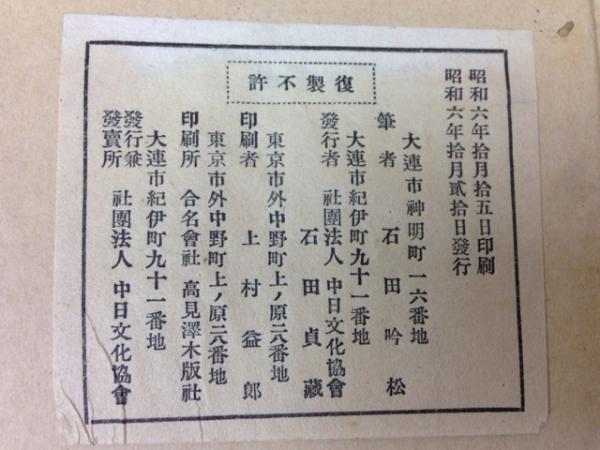 昭和六年拾月拾五日印刷
昭和六年拾月貳拾日發行
許不製復
大連市神明町一六番地
筆者 石田吟松
大連市紀伊町九十一番地
發行者 社團法人 中日文化協會
石田貞藏
東京市外中野町上ノ原二六番地
印刷者 上村益郎
東京市外中野町上ノ原二六番地
印刷所 合名會社 高見澤木版社
大連市紀伊町九十一番地
發行兼
發賣所 社團法人 中日文化協會